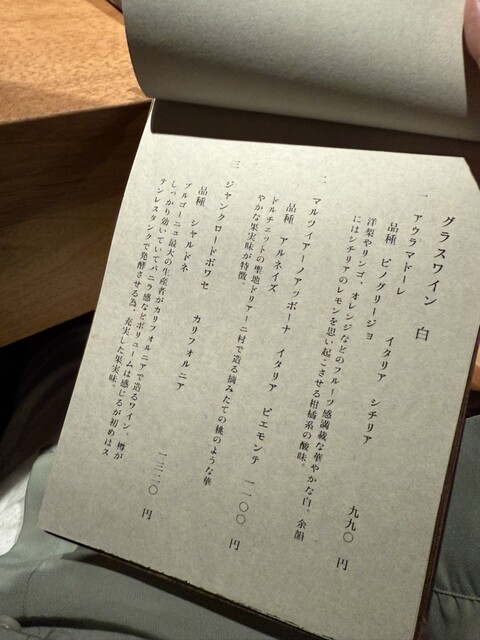 グラスワイン　白
一　アウラマドーレ
品種　ピノグリージョ　イタリア　シチリア
洋梨やリンゴ、オレンジなどのフルーツ感満載な華やかな白。余韻
にはシチリアのレモンを思い起こさせる柑橘系の酸味。
九九〇　円
二　マルツィアーノアッボーナ　イタリア　ピエモンテ　一一〇〇　円
品種　アルネイズ
ドルチェットの聖地ドリアーニ村で造る摘みたての桃のような華
やかな果実味が特徴。
三　ジャンクロードボワセ　カリフォルニア
品種　シャルドネ
ブルゴーニュ最大の生産者がカリフォルニアで造るワイン、樽が
しっかり効いていてバニラ感などボリュームは感じるが初めはス
テンレスタンクで発酵させる為、充実した果実味。
一三二〇　円